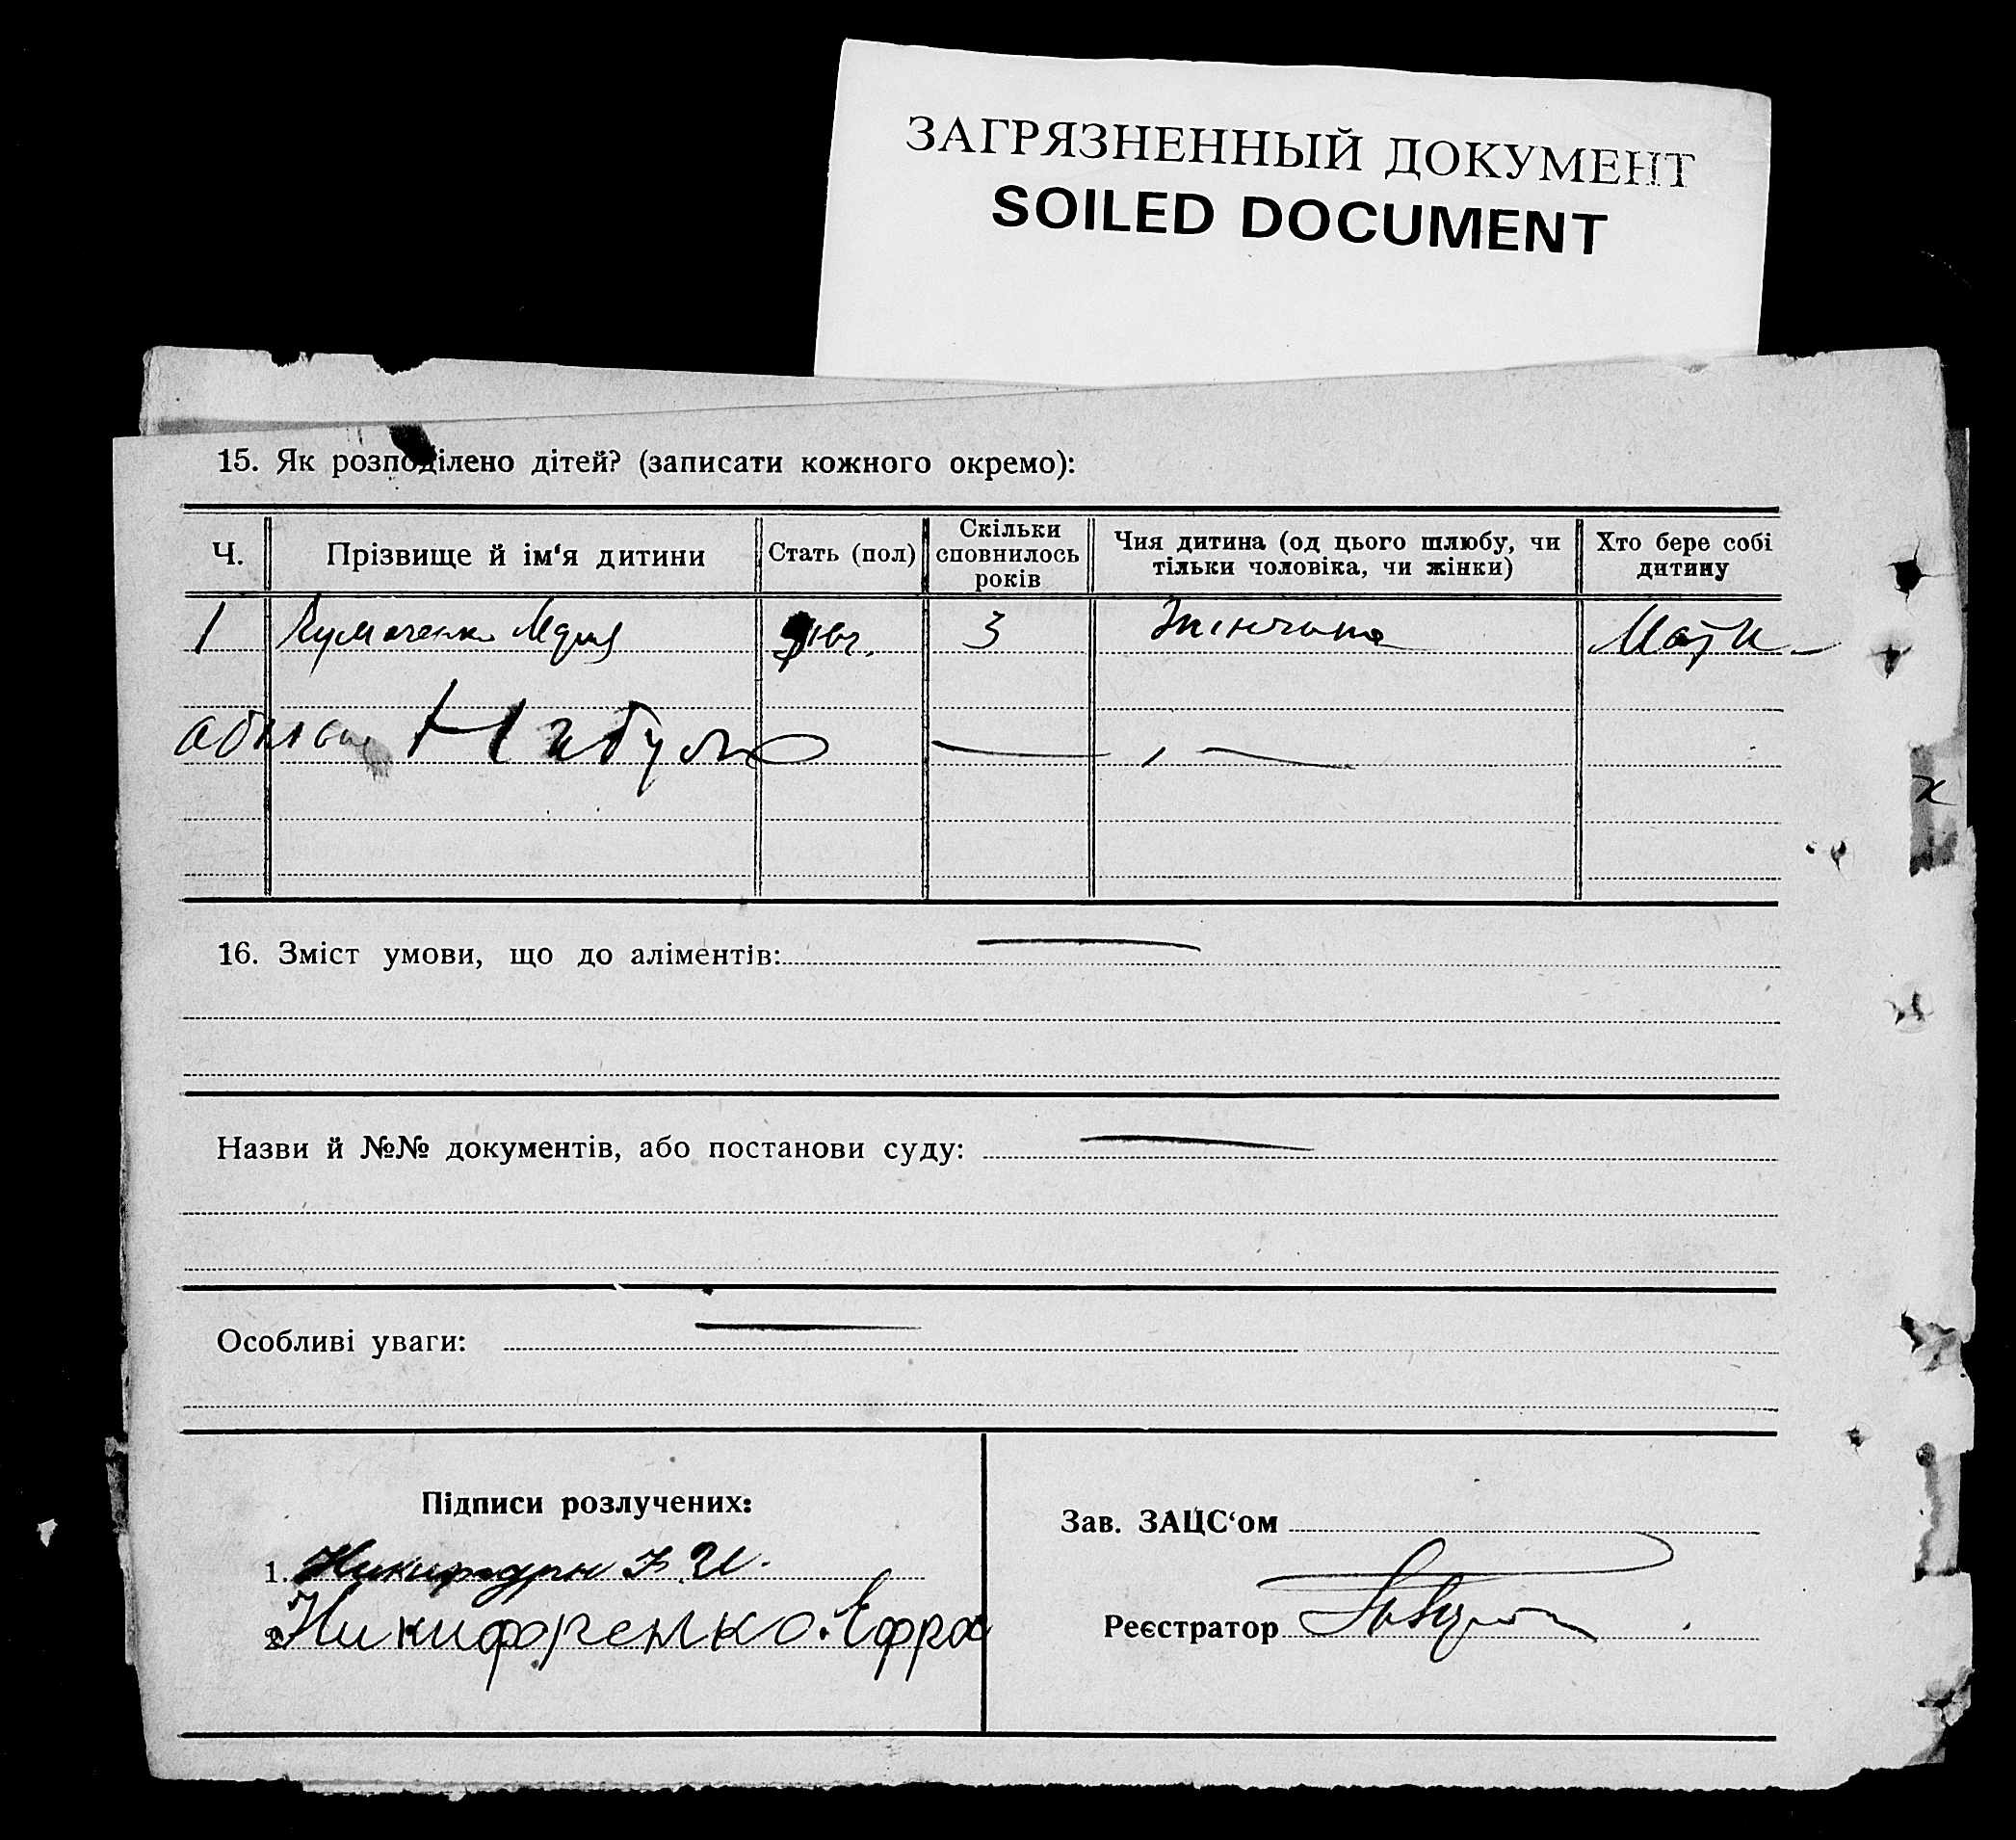 ЗАГРЯЗНЕННЫЙ ДОКУМЕНТ
SOILED DOCUMENT
15. Як розподілено дітей? (записати кожного окремо):
Ч. Прізвище й ім'я дитини Стать (пол) Скільки сповнилось років Чия дитина (од цього шлюбу, чи тільки чоловіка, чи жінки) Хто бере собі дитину
1 3
16. Зміст умови, що до аліментів:
Назви й №№ документів, або постанови суду:
Особливі уваги:
Підписи розлучених:
Зав. ЗАЦС'ом
1.
2. Никифоренко Ефра
Реєстратор